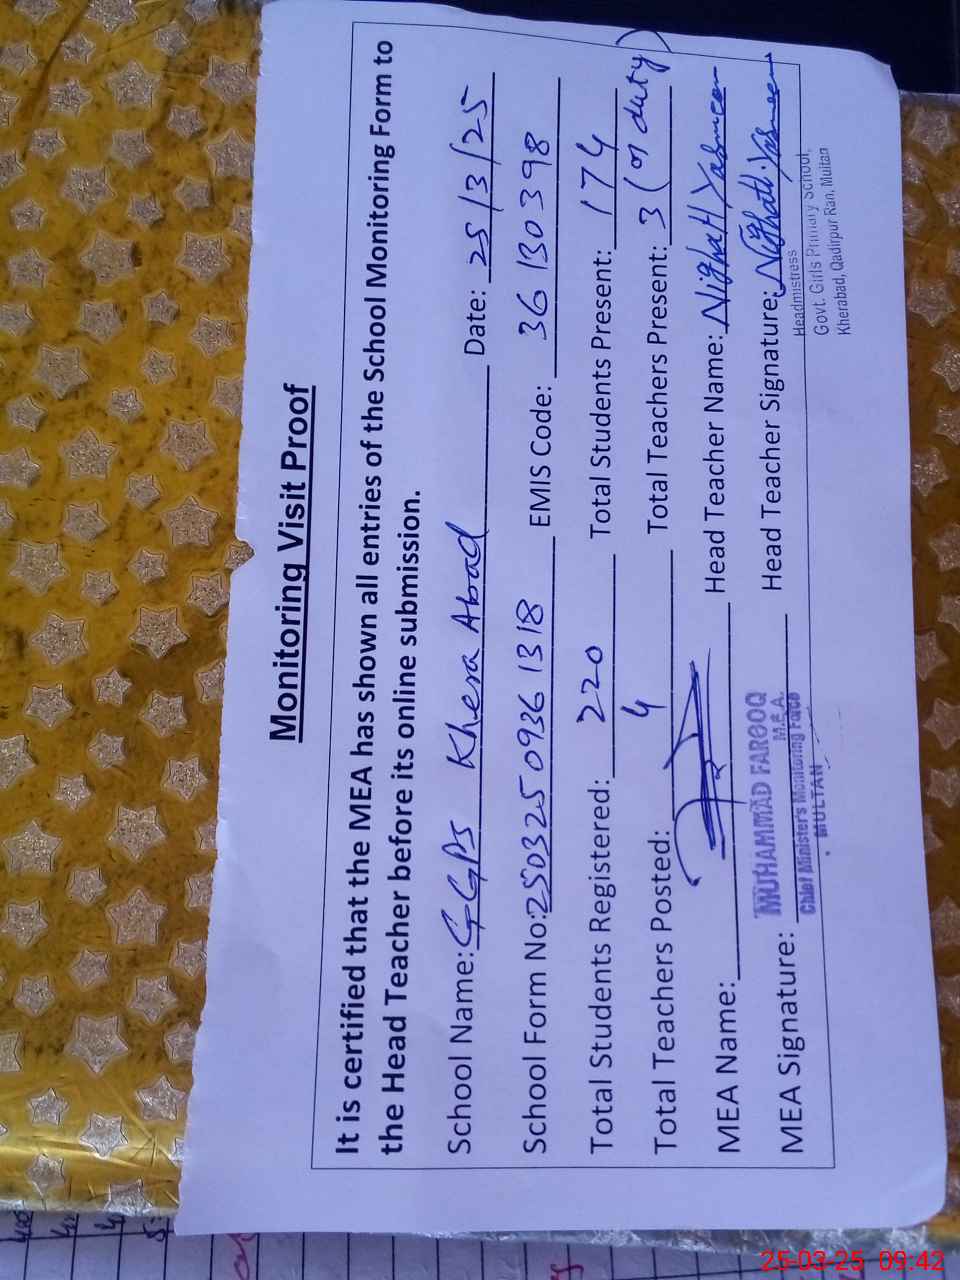 Monitoring Visit Proof
It is certified that the MEA has shown all entries of the School Monitoring Form to
the Head Teacher before its online submission.
School Name: GGPS Khera Abad Date: 25/3/25
School Form No: 250325 0936 1318 EMIS Code: 36130398
Total Students Registered: 220 Total Students Present: 174
Total Teachers Posted: 4 Total Teachers Present: 3 (on duty)
MEA Name: Head Teacher Name: Nighat Yasmeen
MUHAMMAD FAROOQ
M.E.A.
MEA Signature: Chief Minister's Monitoring Force Head Teacher Signature: Nighat Yasmeen
MULTAN
Headmistress
Govt. Girls Primary School,
Kherabad, Qadirpur Ran, Multan
25-03-25 09:42